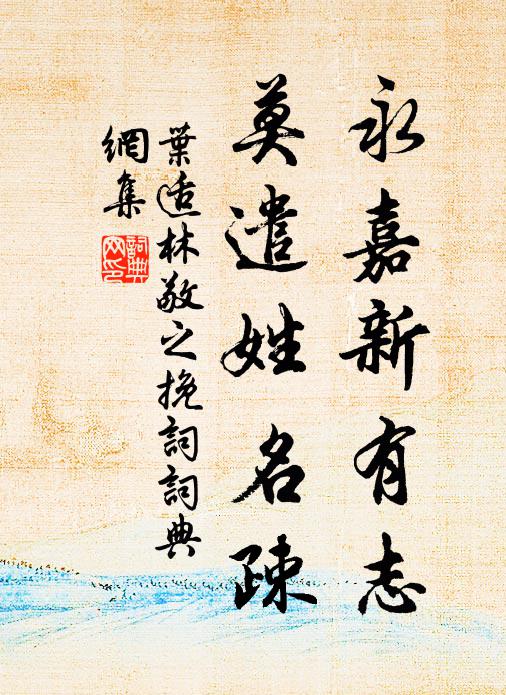 永嘉新有志
莫遣姓名疎
葉适林敬之挽詞詞典
網集
詞典
网印